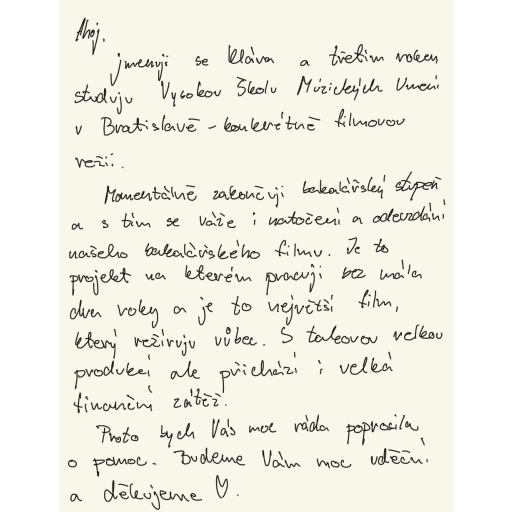 Ahoj.
jmenuji se Klára a třetím rokem
studuju Vysokou Školu Múzických Umění
v Bratislavě - konkrétně filmovou
režii.
Momentálně zakončuji bakalářský stupeň
a s tím se váže i natočení a odevzdání
našeho bakalářského filmu. Je to
projekt na kterém pracuji bez mála
dva roky a je to největší film,
který režíruju vůbec. S takovou velkou
produkcí ale přichází i velká
finanční zátěž.
Proto bych Vás moc ráda poprosila
o pomoc. Budeme Vám moc vděční
a děkujeme ♡.